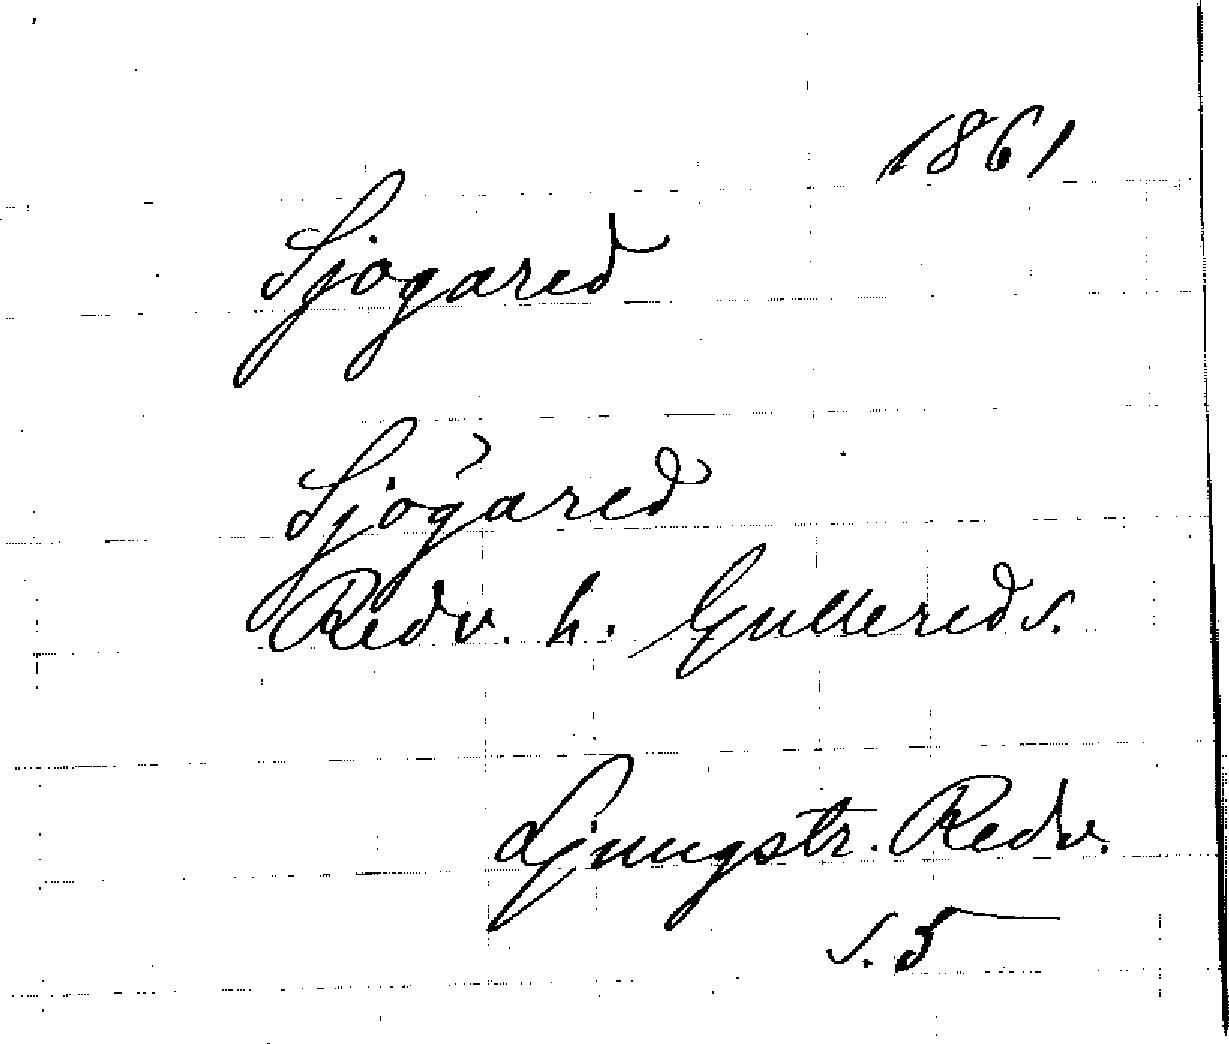 1861
Sjögared
Sjögared
Redv. h. Gullereds.
Ljungstr. Redv.
s. 5